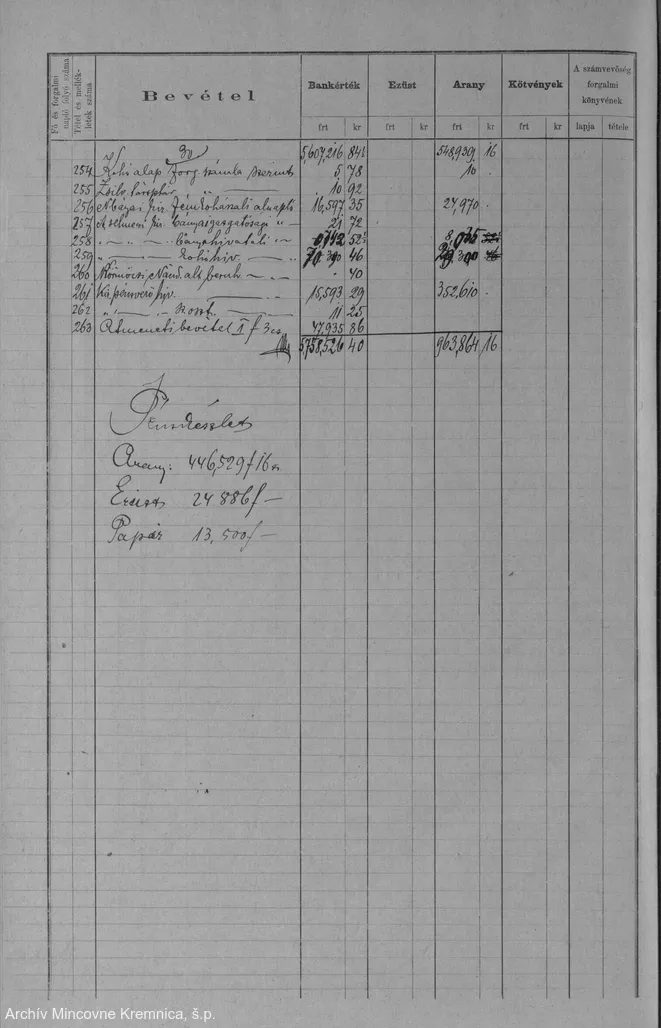 Fő és forgalmi napló folyó száma
Tétel és mellékletek száma
Bevétel
Bankérték
Ezüst
Arany
Kötvények
A számvevőség forgalmi könyvének
frt kr frt kr frt kr frt kr lapja tétele
30 5,607,216 84½ 548,939 16
254 alap forg számla szerint 5 78 10
255 Zsilv. 10 92
256 Nbányai 16,597 35 27,970
257 A selmeczi bányaigazgatósági 21 72
258 bányahivatali 52½
259 kohóhiv. 46
260 Körmöczi Nánd. alt. 40
261 pénzverő hiv. 15,593 29 352,610
262 11 25
263 Átmeneti bevétel 47,935 86
5758,526 40 963,864 16
Pénzkészlet
Arany: 446,529 f 16
Ezüst 24 886 f —
Papír 13,500 f —
Archív Mincovne Kremnica, š.p.